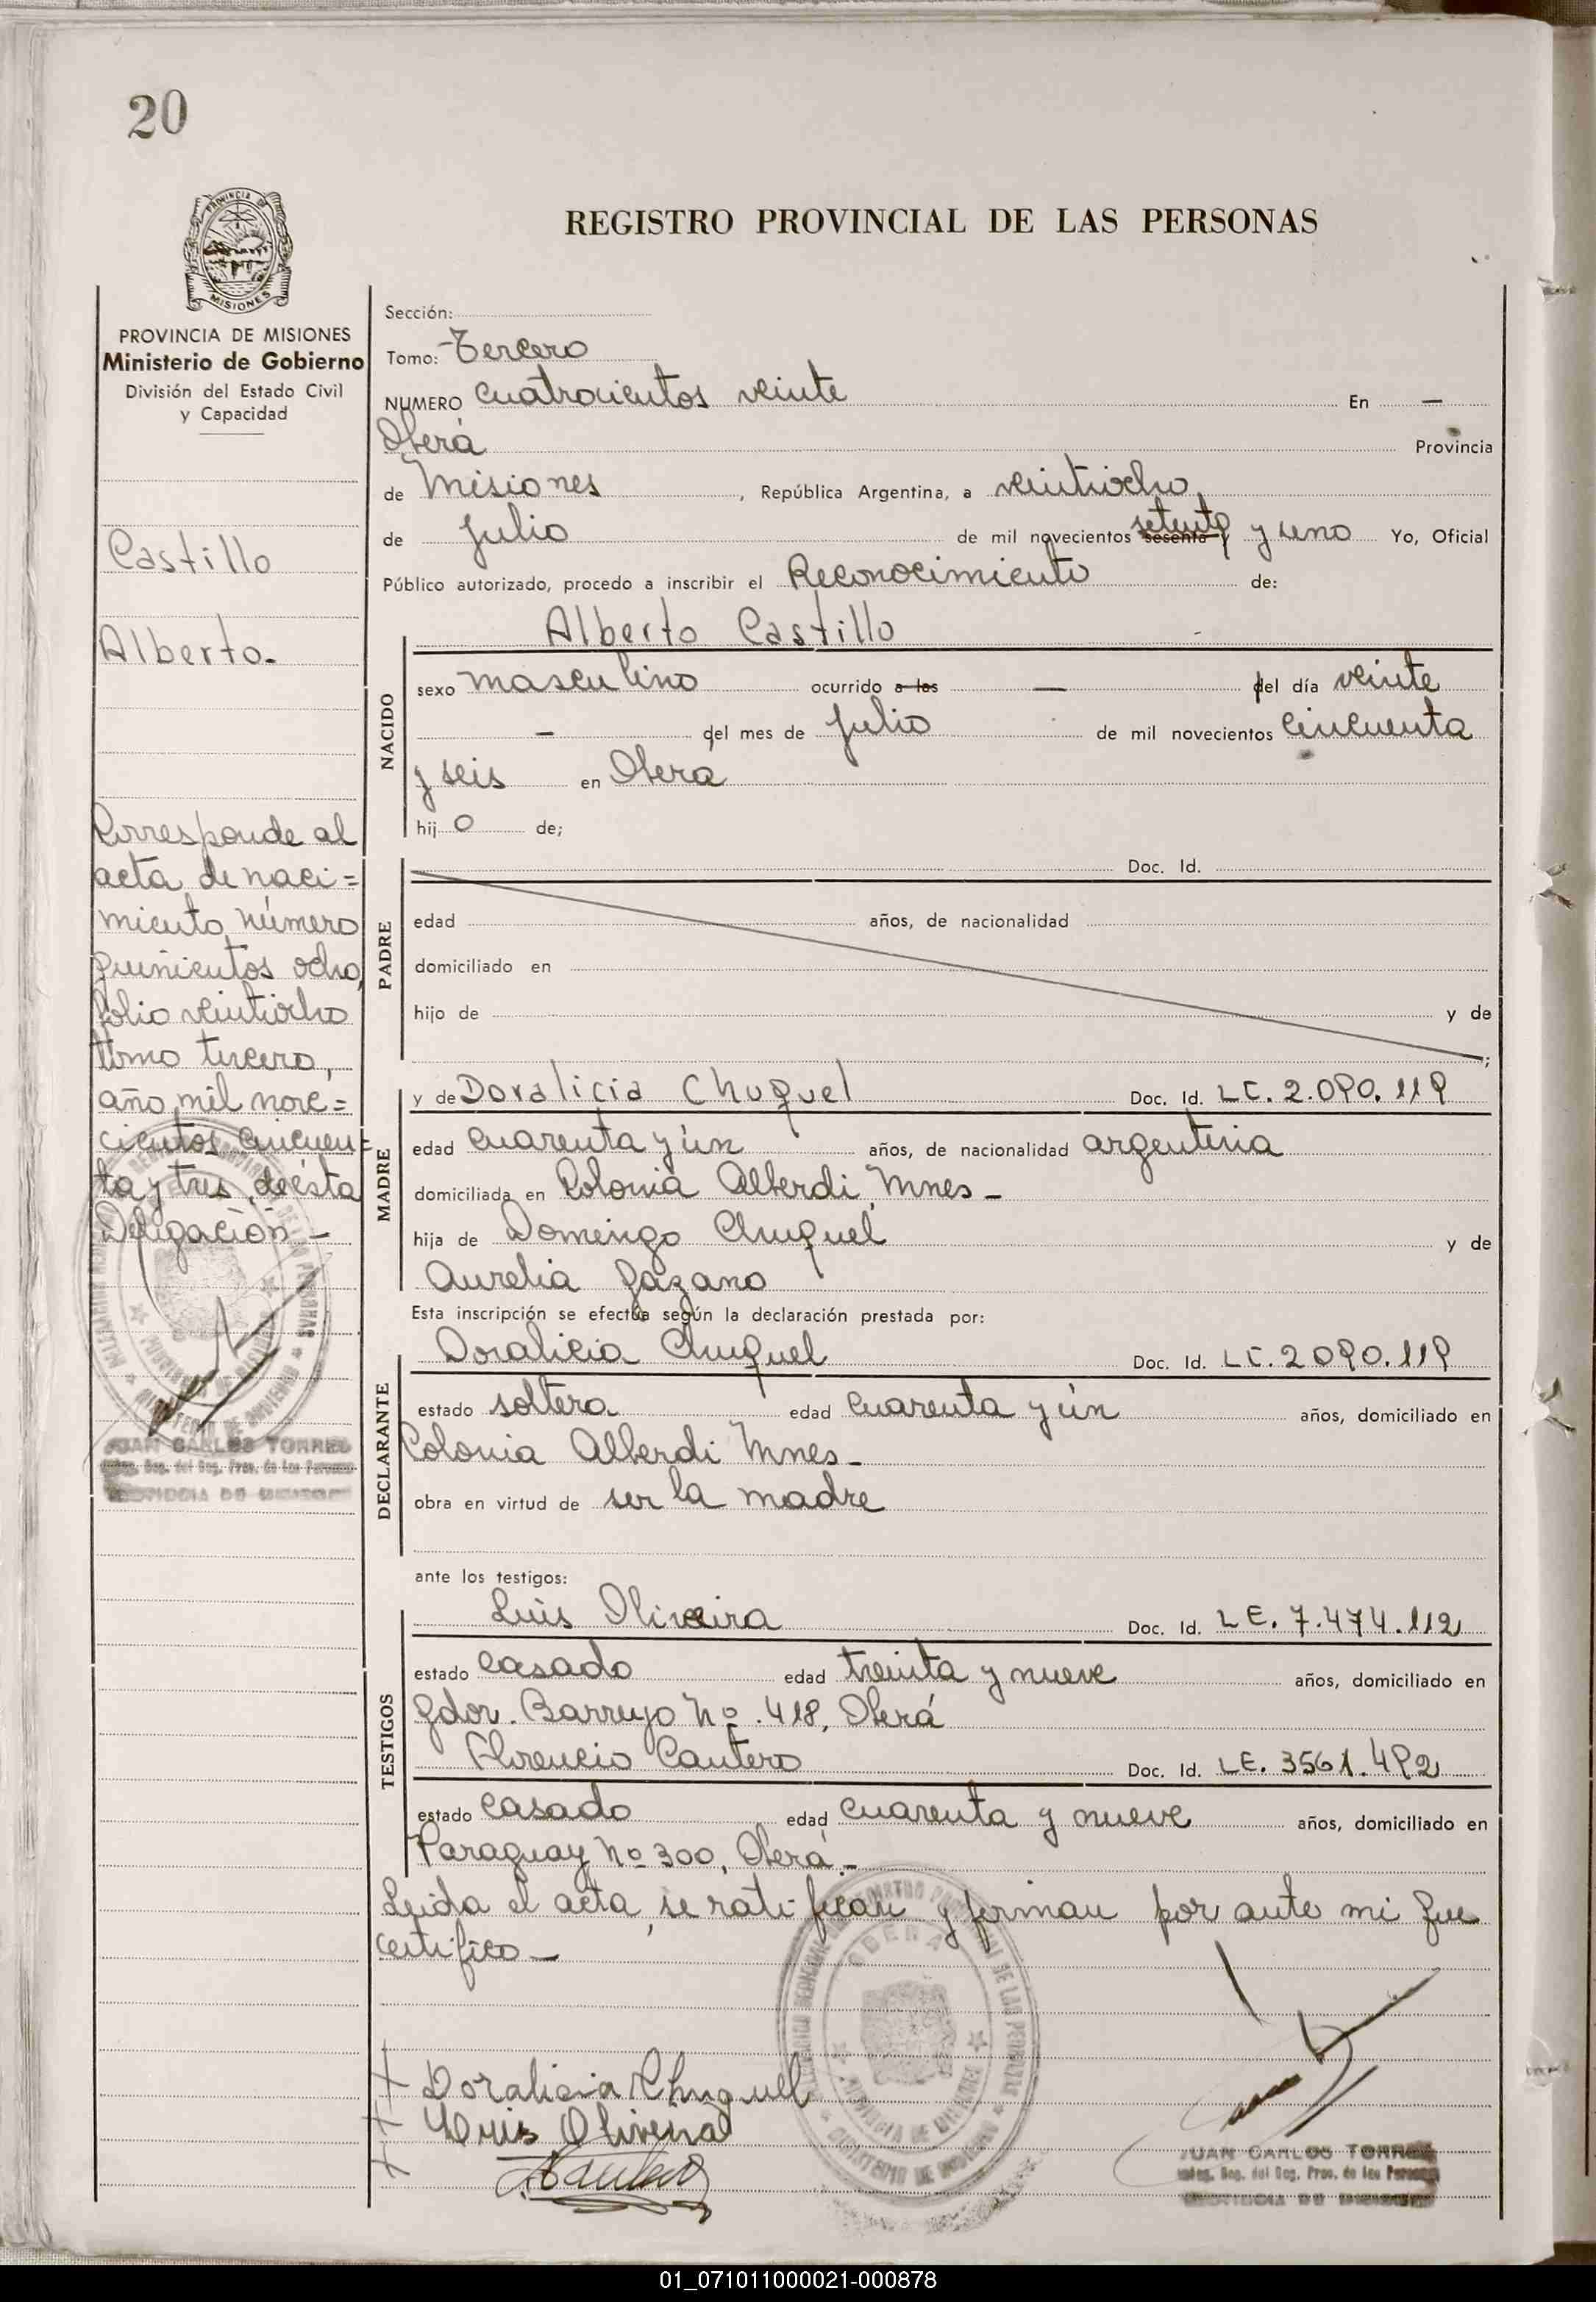 20
PROVINCIA DE MISIONES
REGISTRO PROVINCIAL DE LAS PERSONAS
PROVINCIA DE MISIONES
Ministerio de Gobierno
División del Estado Civil
y Capacidad
Castillo
Alberto.
Corresponde al
acta de naci=
miento número
quinientos ocho,
folio veintiocho
tomo tercero,
año mil nove=
cientos cincuen=
ta y tres, de ésta
Delegación -
JUAN CARLOS TORRES
Sección:
Tomo: Tercero
NUMERO cuatrocientos veinte En —
Oberá Provincia
de Misiones, República Argentina, a veintiocho
de Julio de mil novecientos sesenta setenta y uno Yo, Oficial
Público autorizado, procedo a inscribir el Reconocimiento de:
Alberto Castillo
NACIDO
sexo masculino ocurrido a las — del día veinte
— del mes de Julio de mil novecientos cincuenta
y seis en Oberá
hij o de;
PADRE
Doc. Id.
edad años, de nacionalidad
domiciliado en
hijo de y de
;
MADRE
y de Doralicia Chuquel Doc. Id. LC. 2.090.119
edad cuarenta y ún años, de nacionalidad argentina
domiciliada en Colonia Alberdi, Mnes -
hija de Domingo Chuquel y de
Aurelia Gazano
Esta inscripción se efectúa según la declaración prestada por:
DECLARANTE
Doralicia Chuquel Doc. Id. LC. 2090.119
estado soltera edad cuarenta y ún años, domiciliado en
Colonia Alberdi Mnes -
obra en virtud de ser la madre
ante los testigos:
TESTIGOS
Luis Oliveira Doc. Id. LE. 7.474.112
estado casado edad treinta y nueve años, domiciliado en
Gdor. Barreyo Nº. 418, Oberá
Florencio Cantero Doc. Id. LE. 3561.492
estado casado edad cuarenta y nueve años, domiciliado en
Paraguay Nº 300, Oberá.-
Leida el acta, se ratifican y firman por ante mi que
certifico -
OBERA
X Doralicia Chuquel
X Luis Olivera
X
JUAN CARLOS TORRES
01_071011000021-000878